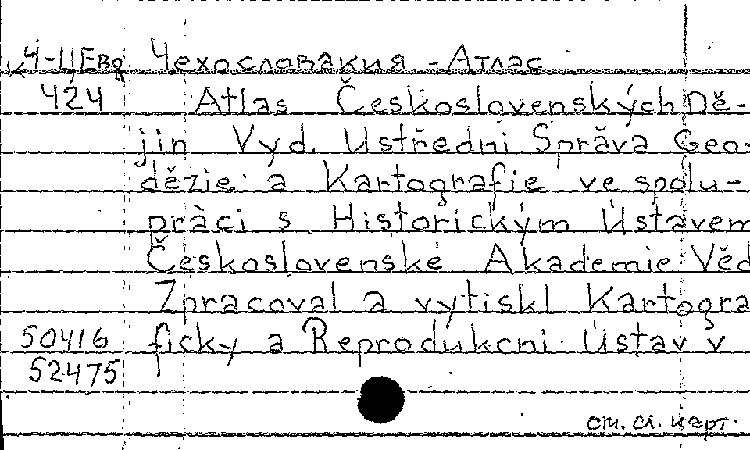 Ч-ЦЕвр Чехословакия - Атлас
424 Atlas Československých Dě-
jin Vyd. Ustředni Správa Geo-
dězie a Kartografie ve spolu-
práci s Historickým Ustavem
Československé Akademie Věd
Zpracoval a vytiskl Kartogra
50416 ficky a Reprodukcni Ustav v
52475
см. сл. карт.